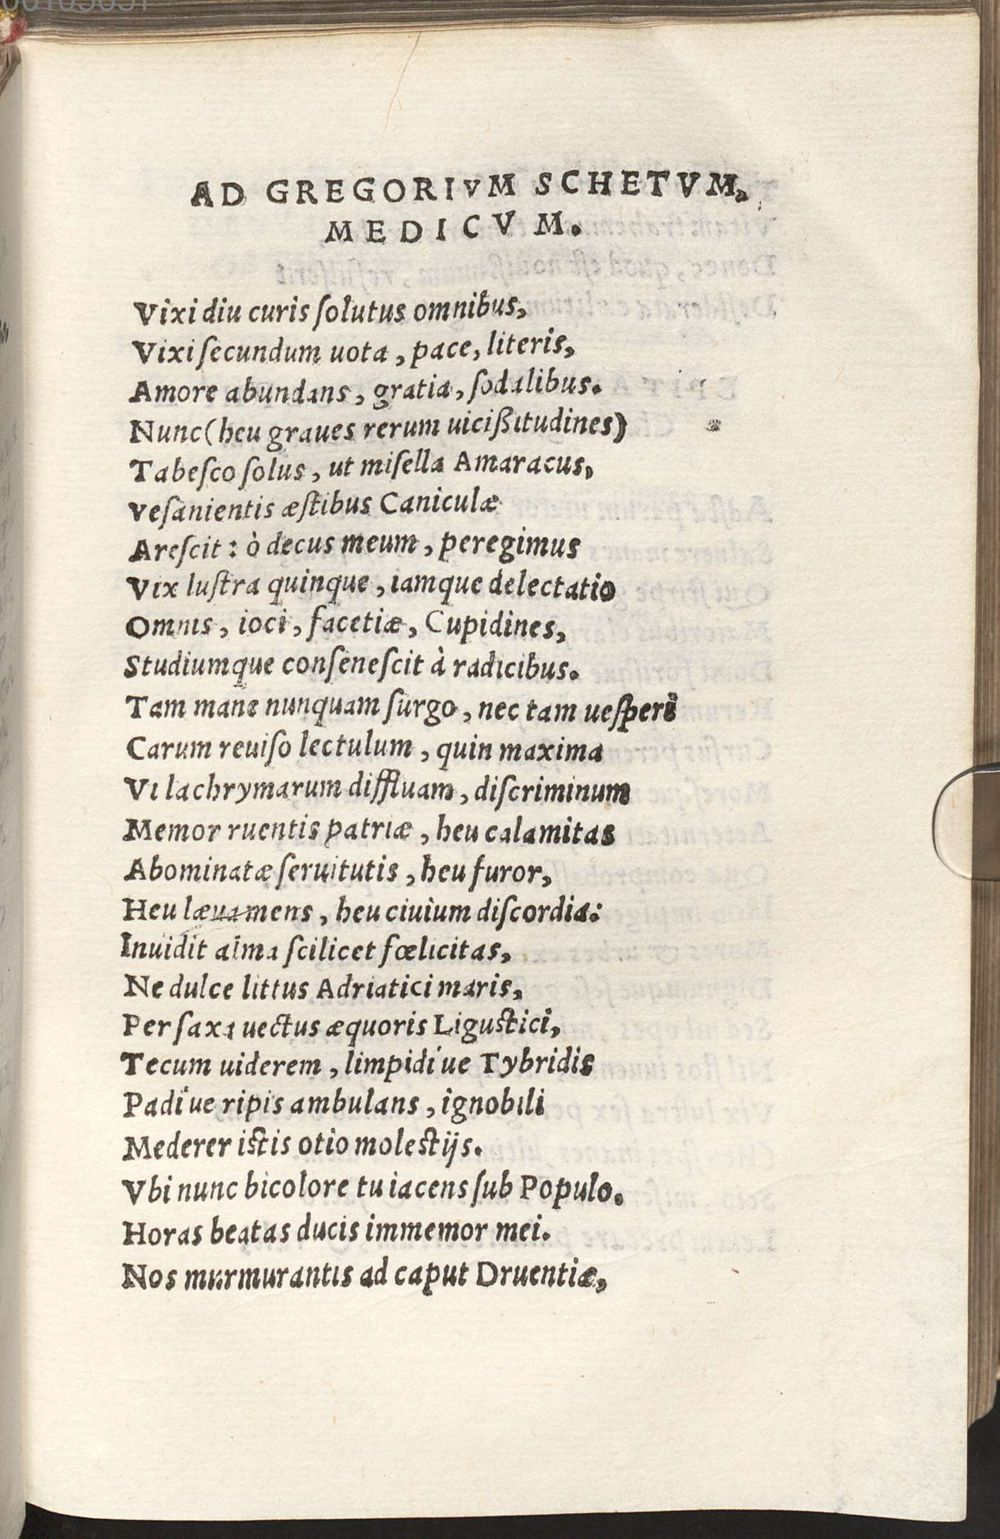 AD GREGORIVM SCHETVM,
MEDICVM.
Vixi diu curis ſolutus omnibus,
Vixi ſecundum uota, pace, literis,
Amore abundans, gratia, ſodalibus.
Nunc (heu graues rerum uiciſsitudines)
Tabeſco ſolus, ut miſella Amaracus,
Veſanientis æſtibus Caniculæ
Areſcit: ò decus meum, peregimus
Vix luſtra quinque, iamque delectatio
Omnis, ioci, facetiæ, Cupidines,
Studiumque conſeneſcit à radicibus.
Tam mane nunquam ſurgo, nec tam ueſperè
Carum reuiſo lectulum, quin maxima
Vi lachrymarum diffluam, diſcriminum
Memor ruentis patriæ, heu calamitas
Abominatæ ſeruitutis, heu furor,
Heu læua mens, heu ciuium diſcordia:
Inuidit alma ſcilicet fœlicitas,
Ne dulce littus Adriatici maris,
Per ſaxa uectus æquoris Liguſtici,
Tecum uiderem, limpidi'ue Tybridis
Padi'ue ripis ambulans, ignobili
Mederer iſtis otio moleſtijs.
Vbi nunc bicolore tu iacens ſub Populo.
Horas beatas ducis immemor mei.
Nos murmurantis ad caput Druentiæ,